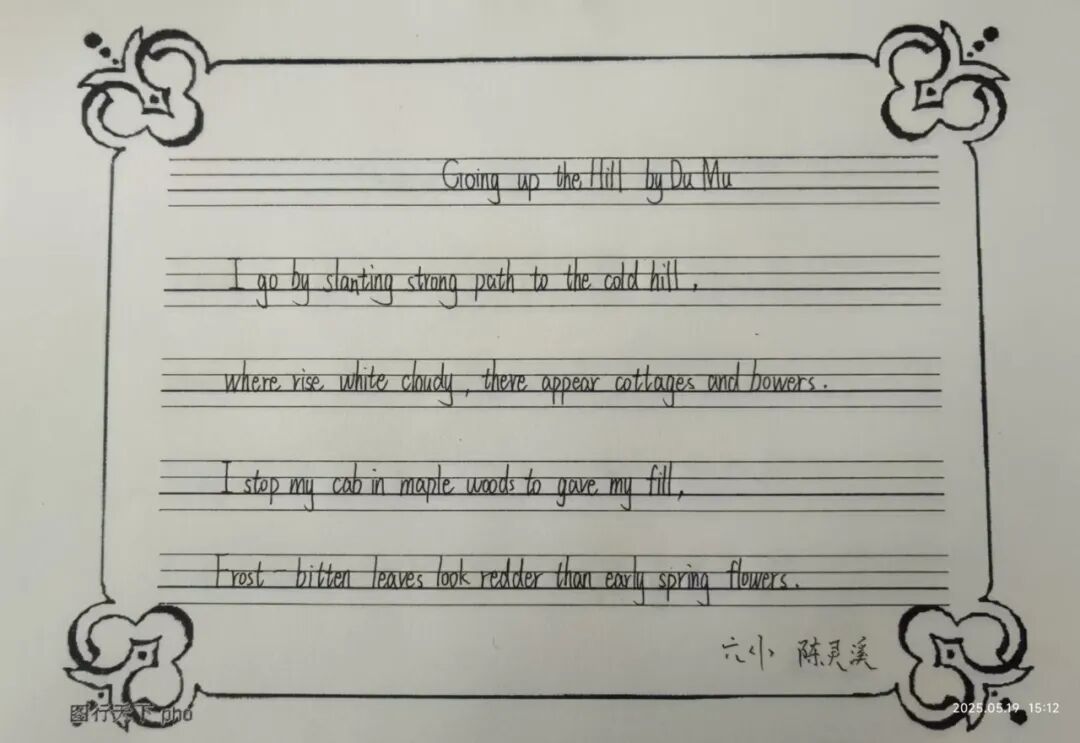 Going up the Hill by Du Mu
I go by slanting strong path to the cold hill,
where rise white cloudy, there appear cottages and bowers.
I stop my cab in maple woods to gave my fill,
Frost-bitten leaves look redder than early spring flowers.
六小 陈灵溪
图行天下 pho
2025.05.19 15:12